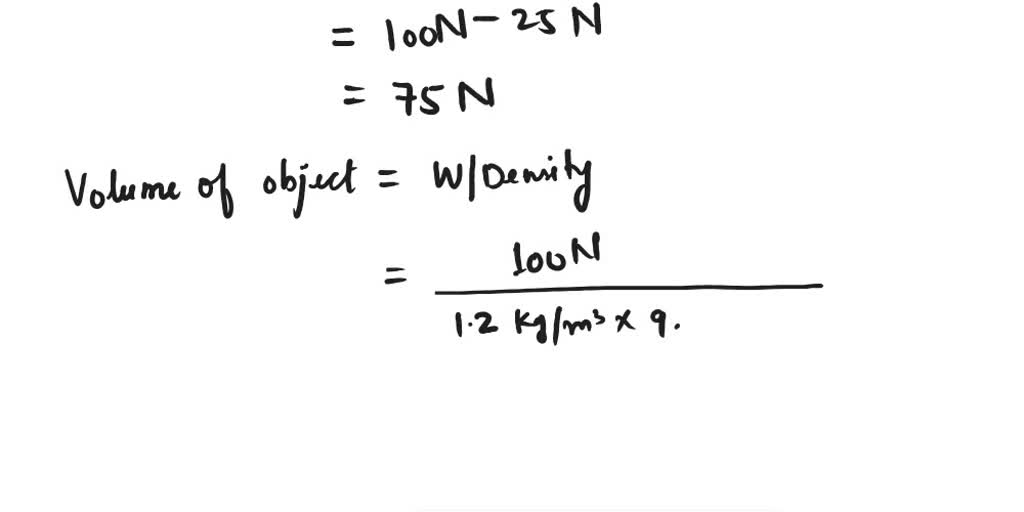 = 100N - 25 N
= 75 N
Volume of object = W/Density
= 100N
1.2 kg/m³ × 9.